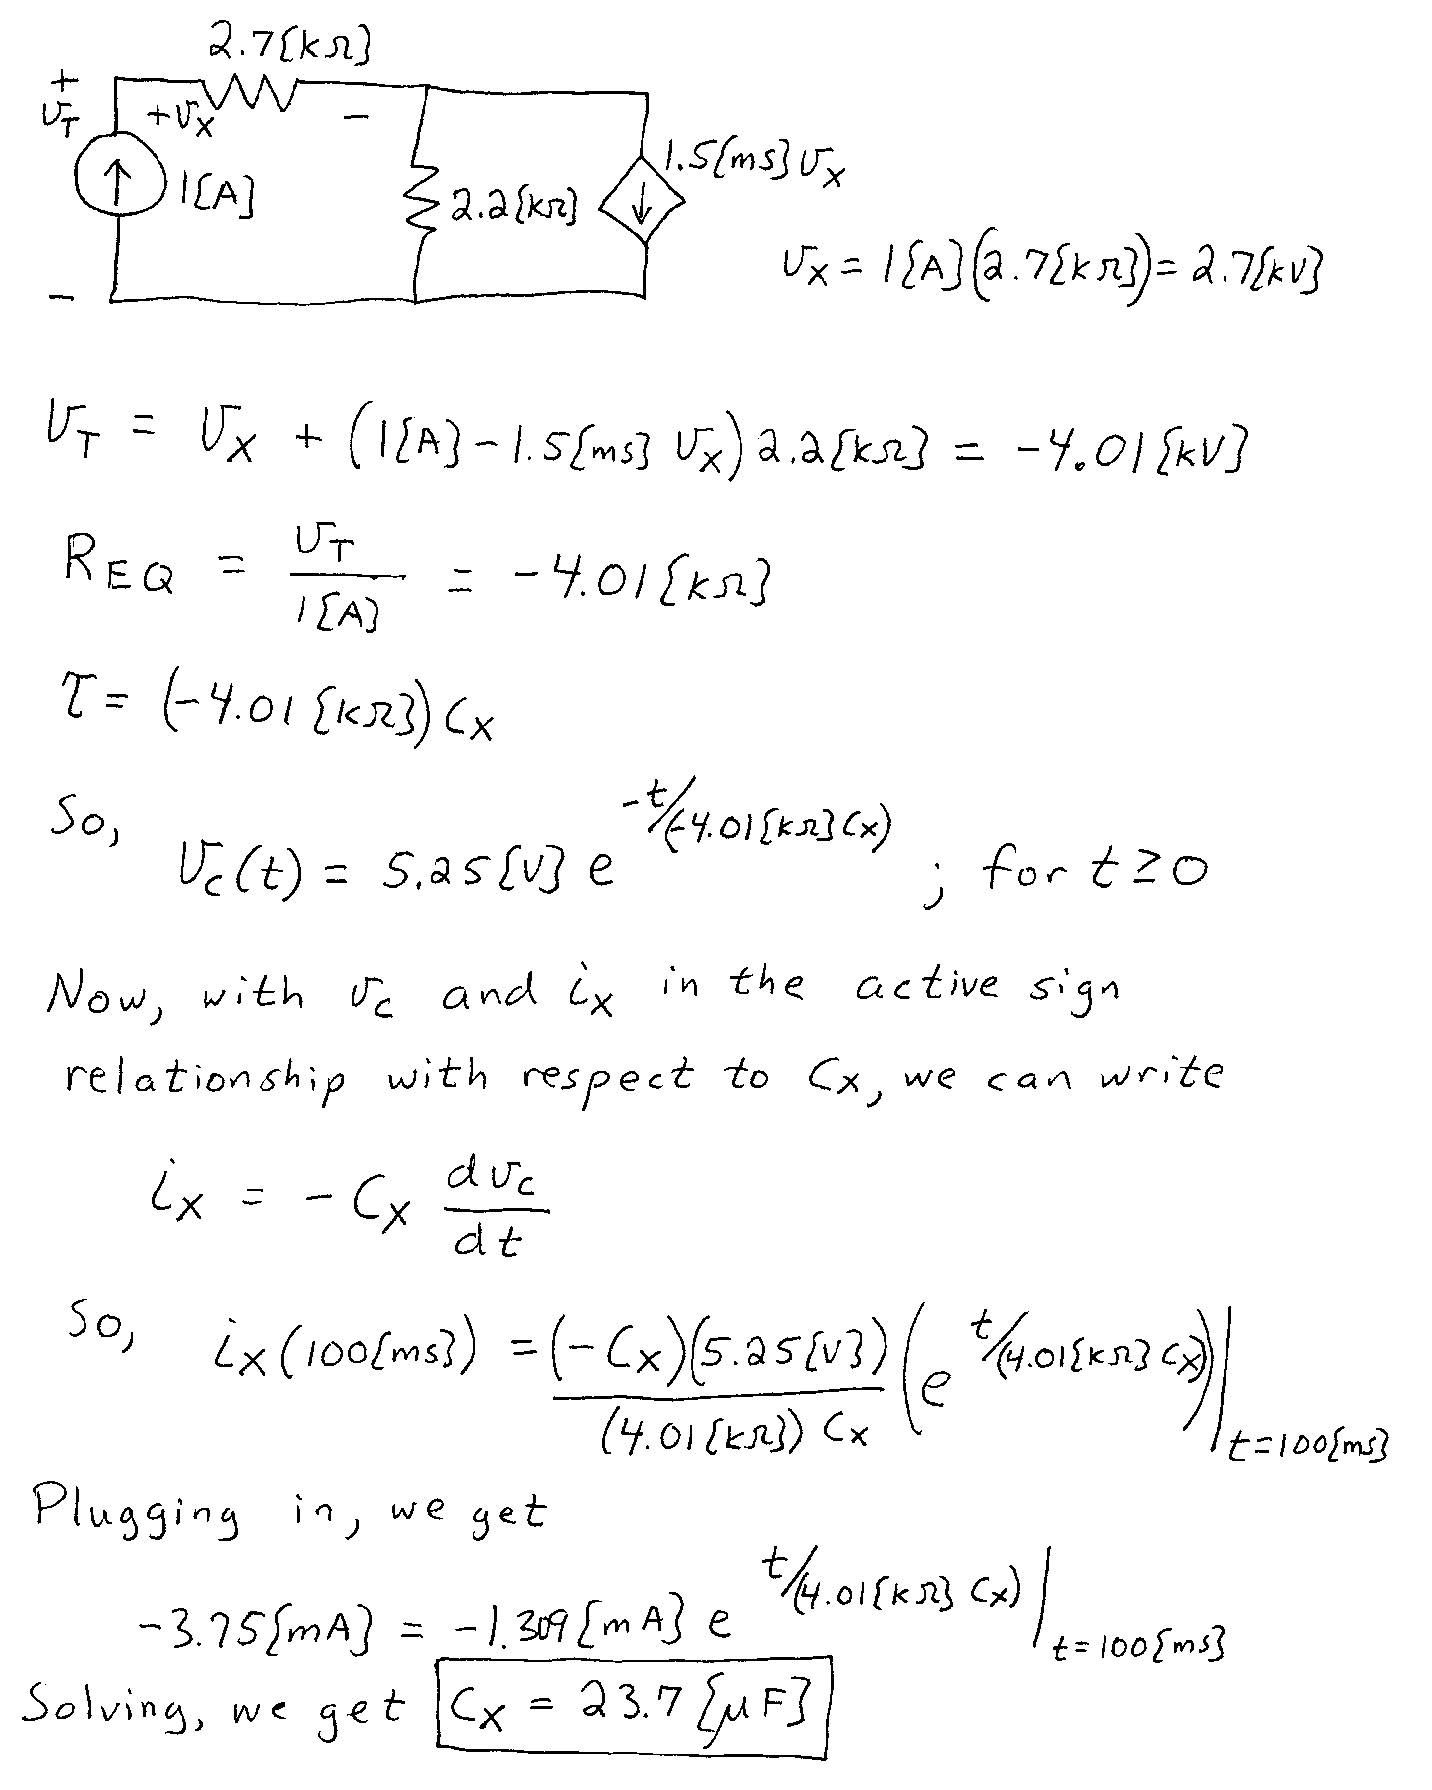 2.7[kΩ]
+
v_T
+ v_X -
1[A]
2.2[kΩ]
1.5[ms] v_X
-
v_X = 1[A](2.7[kΩ]) = 2.7[kV]
v_T = v_X + (1[A] - 1.5[ms] v_X) 2.2[kΩ] = -4.01[kV]
R_EQ = v_T / 1[A] = -4.01[kΩ]
τ = (-4.01[kΩ]) C_X
So,
v_C(t) = 5.25[V] e^{-t/(-4.01[kΩ] C_X)} ; for t ≥ 0
Now, with v_C and i_X in the active sign
relationship with respect to C_X, we can write
i_X = - C_X dv_C / dt
So, i_X(100[ms]) = (-C_X)(5.25[V]) / (4.01[kΩ]) C_X (e^{t/(4.01[kΩ] C_X)}) |_{t=100[ms]}
Plugging in, we get
-3.75[mA] = -1.309[mA] e^{t/(4.01[kΩ] C_X)} |_{t=100[ms]}
Solving, we get C_X = 23.7[μF]